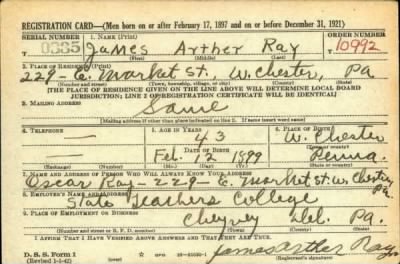 REGISTRATION CARD—(Men born on or after February 17, 1897 and on or before December 31, 1921)
SERIAL NUMBER 1. NAME (Print) ORDER NUMBER
0335 James Arther Ray 10992
(First) (Middle) (Last)
2. PLACE OF RESIDENCE (Print)
229 - E. Market St. W. Chester, Pa
(Number and street) (Town, township, village, or city) (County) (State)
[THE PLACE OF RESIDENCE GIVEN ON THE LINE ABOVE WILL DETERMINE LOCAL BOARD
JURISDICTION; LINE 2 OF REGISTRATION CERTIFICATE WILL BE IDENTICAL]
3. MAILING ADDRESS
Same
[Mailing address if other than place indicated on line 2. If same insert word same]
4. TELEPHONE 5. AGE IN YEARS 6. PLACE OF BIRTH
— 43 W. Chester
DATE OF BIRTH (Town or county)
— Feb. 12 1899 Penna.
(Exchange) (Number) (Mo.) (Day) (Yr.) (State or country)
7. NAME AND ADDRESS OF PERSON WHO WILL ALWAYS KNOW YOUR ADDRESS
Oscar Ray - 229 - E. Market St. W. Chester Pa.
8. EMPLOYER'S NAME AND ADDRESS
State Teachers College
9. PLACE OF EMPLOYMENT OR BUSINESS
Cheyney Del. Pa.
(Number and street or R. F. D. number) (Town) (County) (State)
I AFFIRM THAT I HAVE VERIFIED ABOVE ANSWERS AND THAT THEY ARE TRUE.
James Arther Ray
D. S. S. Form 1 (Registrant's signature)
(Revised 1-1-42) (over)